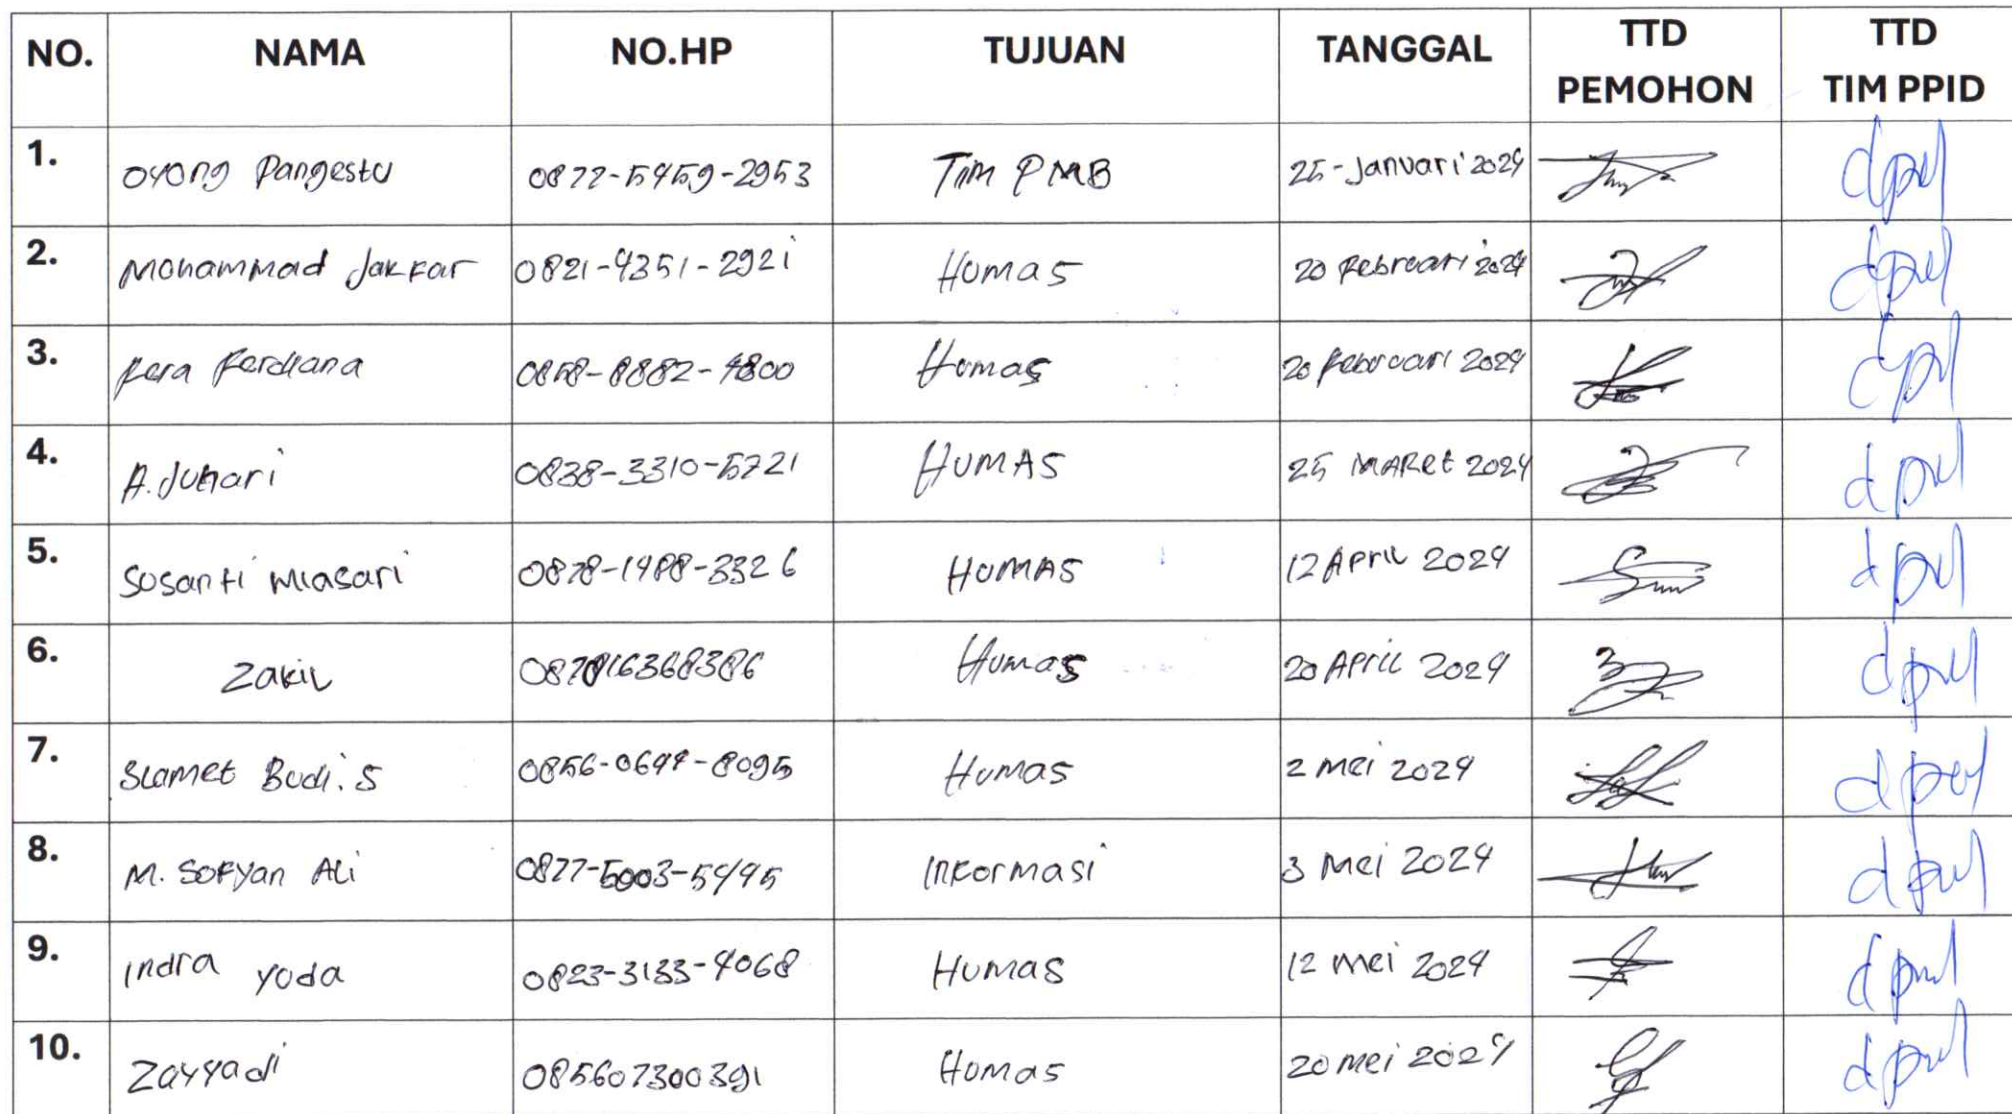 NO. NAMA NO.HP TUJUAN TANGGAL TTD PEMOHON TTD TIM PPID
1. Oyong Pangestu 0877-5459-2953 Tim PMB 25-Januari 2024
2. Mohammad Jakfar 0821-4351-2921 Humas 20 Februari 2024
3. Fera Ferdiana 0858-8882-4800 Humas 20 Februari 2024
4. A. Juhari 0838-3310-5721 HUMAS 25 MARet 2024
5. Susanti Miasari 0878-1488-3326 HUMAS 12 April 2024
6. Zakil 087816368386 Humas 20 April 2024
7. Slamet Budi. S 0856-0644-8095 Humas 2 Mei 2024
8. M. Sofyan Ali 0877-5003-5495 Informasi 3 Mei 2024
9. Indra Yuda 0823-3133-4068 Humas 12 Mei 2024
10. Zayyadi 085607300391 Humas 20 Mei 2024